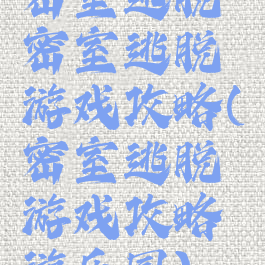 密室逃脱
密室逃脱
游戏攻略(
密室逃脱
游戏攻略
游乐园)